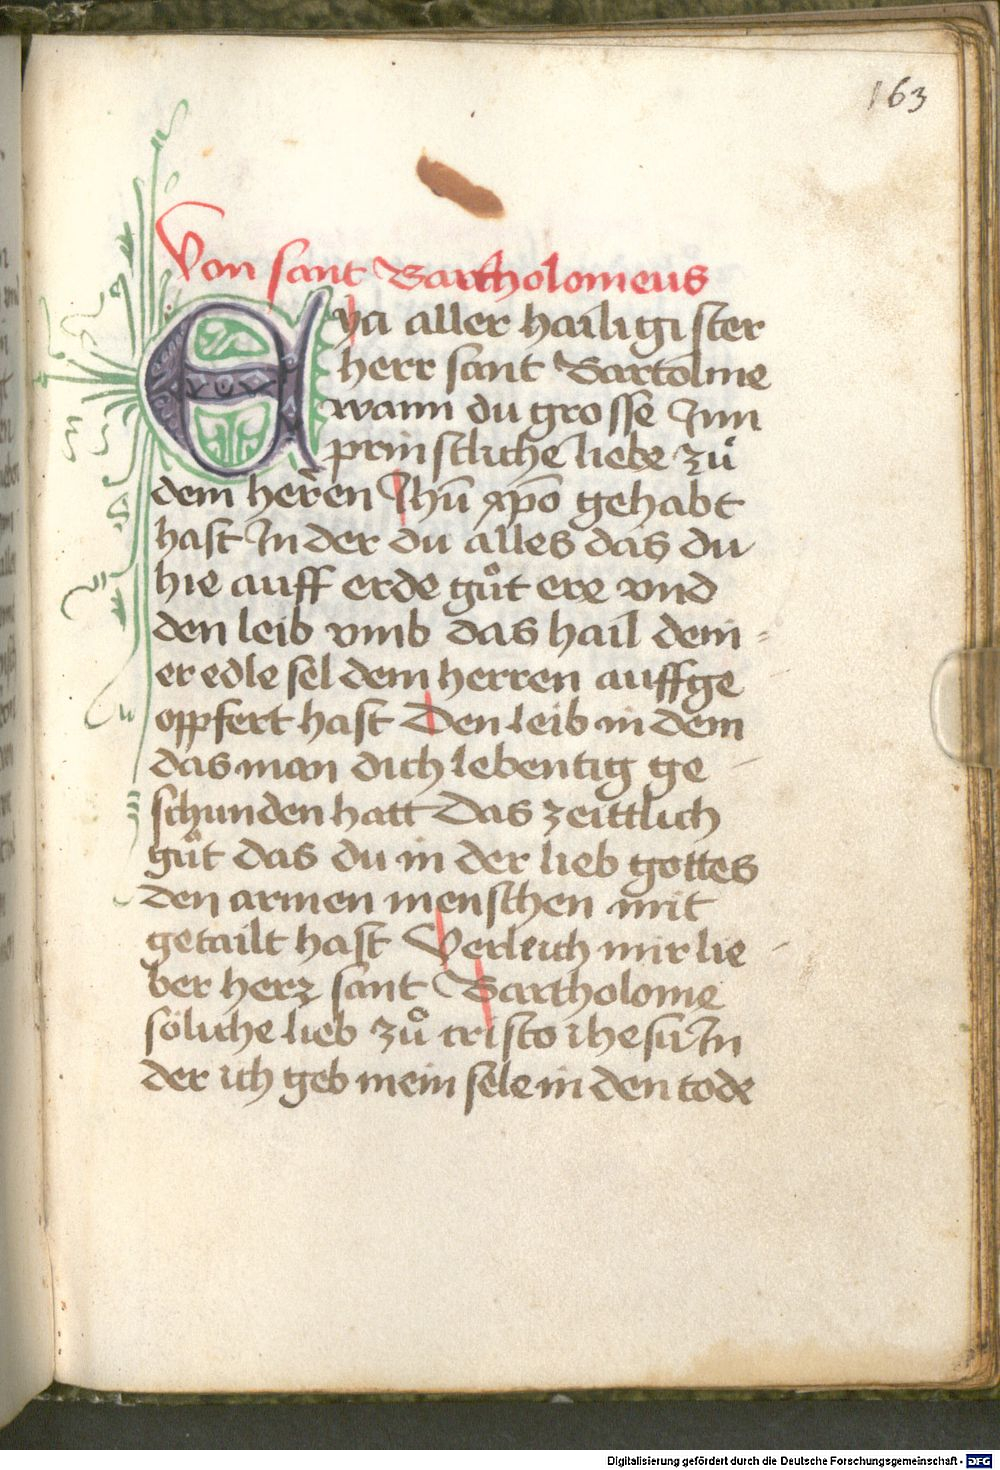 163
Von sant Bartholomeus
Eya aller hailigister
herr sant Bartolme
wann du grosse Inn
prinstliche liebe zuͦ
dem herren Jhū xp̄o gehabt
hast In der du alles das du
hie auff erde guͦt ere vnd
den leib vmb das hail dein=
er edle sel dem herren auffge
opfert hast Den leib in dem
das man dich lebentig ge
schunden hatt Das zeittlich
guͦt das du in der lieb gottes
den armen menschen mit
getailt hast Verleich mir lie
ber herz sant Bartholome
söliche lieb zuͦ cristo ihesu In
der ich geb mein sele in den tode
Digitalisierung gefördert durch die Deutsche Forschungsgemeinschaft - DFG